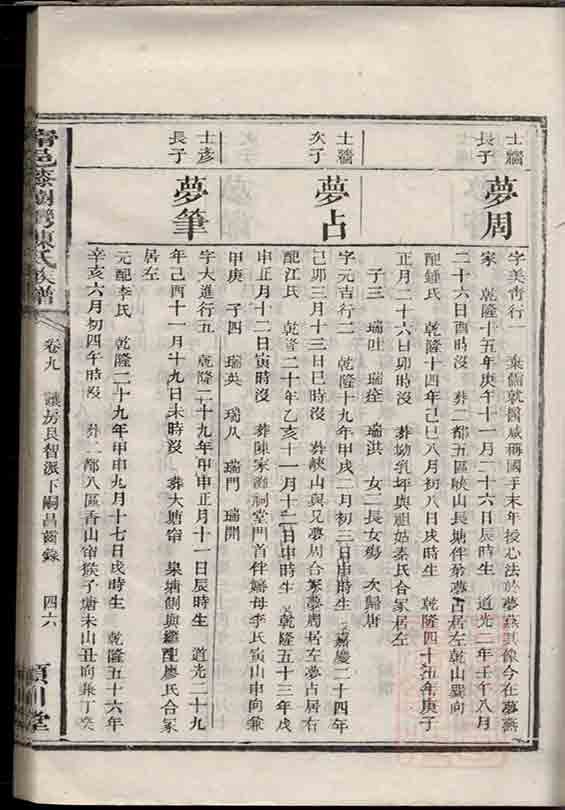 士牆
長子
夢周
字美青行一 棄儒就醫咸稱國手末年授心法於夢燕其像今在夢燕
家 乾隆十五年庚午十一月二十六日辰時生 道光二年壬午八月
二十六日酉時沒 葬二都五區峽山長塘伴弟夢占居左乾山巽向
配鍾氏 乾隆十四年己巳八月初八日戌時生 乾隆四十五年庚子
正月二十六日卯時沒 葬坳乳坪與祖姑秦氏合冢居左
子三 瑞吐 瑞 瑞淇 女二長女殤 次歸唐
士牆
次子
夢占
字元吉行二 乾隆十九年甲戌二月初三日申時生 嘉慶二十四年
己卯三月十三日巳時沒 葬峽山與兄夢周合冢夢周居左夢占居右
配江氏 乾隆二十年乙亥十一月十二日申時生 乾隆五十三年戊
申正月十二日寅時沒 葬陳家灘祠堂門首伴嬸母李氏寅山申向兼
甲庚 子四 瑞英 瑞 瑞門 瑞開
士彥
長子
夢筆
字大進行五 乾隆二十九年甲申正月十一日辰時生 道光二十九
年己酉十一月十九日未時沒 葬大塘 泉塘側與繼配廖氏合冢
居左
元配李氏 乾隆二十九年甲申九月十七日戌時生 乾隆五十六年
辛亥六月初四午時沒 葬二都八區香山 猴子塘未山丑向兼丁癸
甯邑藤樹灣陳氏族譜
卷九
房良智派下嗣昌齒錄
四六
潁川堂